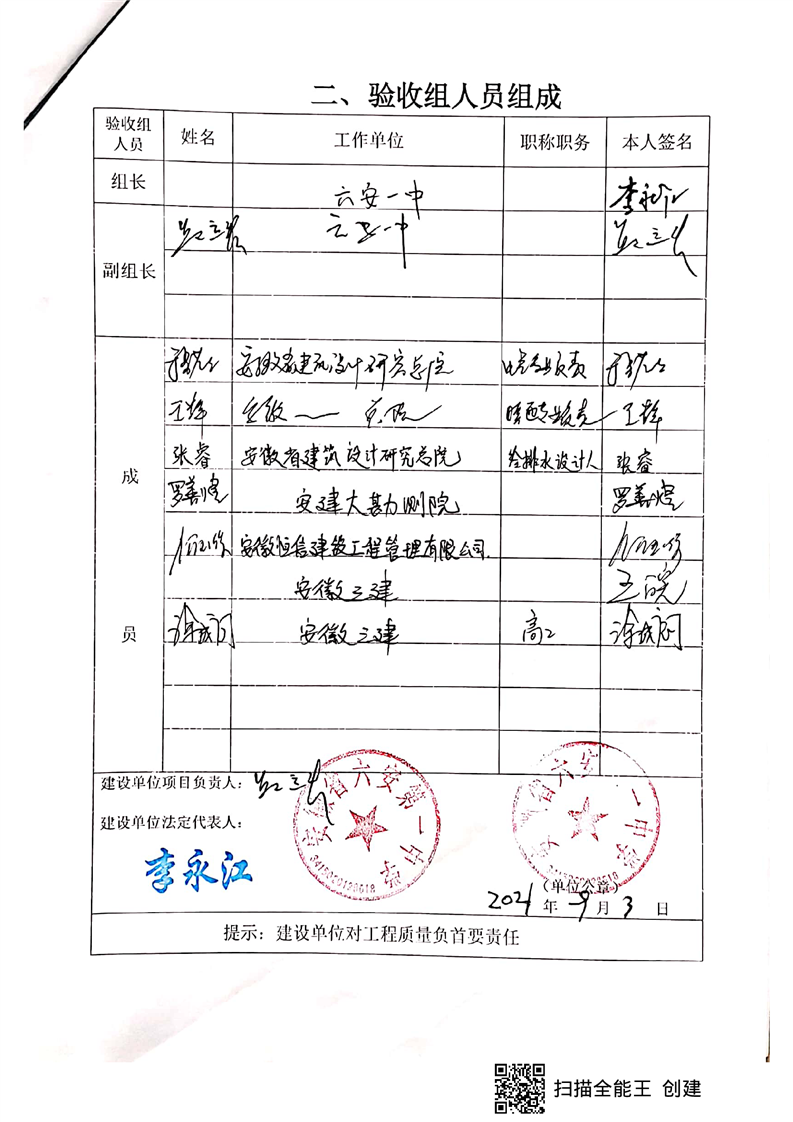 二、验收组人员组成
验收组人员 姓名 工作单位 职称职务 本人签名
组长 六安一中 李永江
副组长 六安一中
成员
安徽省建筑设计研究总院
王辉 王辉
张睿 安徽省建筑设计研究总院 给排水设计人 张睿
罗善煜 安建大勘测院 罗善煜
安徽恒信建设工程管理有限公司
安徽三建 王皖
安徽三建 高工
建设单位项目负责人：
安徽省六安第一中学
安徽省六安第一中学
建设单位法定代表人：
李永江
（单位公章）
2021年9月3日
提示：建设单位对工程质量负首要责任
扫描全能王 创建